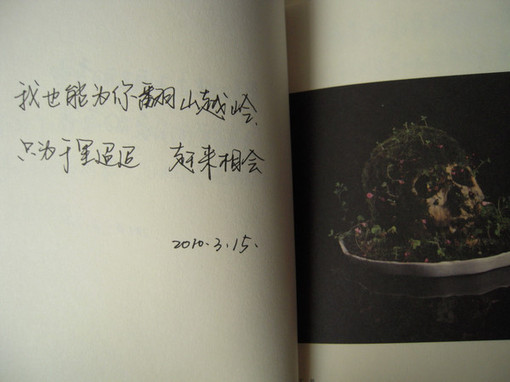 我也能为你翻山越岭,
只为千里迢迢 赶来相会
2010.3.15.